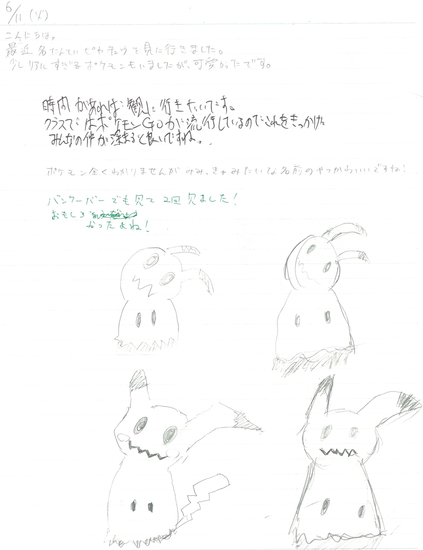 6/11(火)
こんにちは。
最近名たんていピカチュウを見に行きました。
少しリアルすぎるポケモンもいましたが、可愛かったです。
時間があれば観に行きたいです。
クラスではポケモンGOが流行しているのでこれをきっかけに
みんなの仲が深まると良いですね。
ポケモン全くわかりませんが みたいな名前のやつかわいいですね!
バンクーバーでも見て2回見ました!
おもしろ
かったよね!